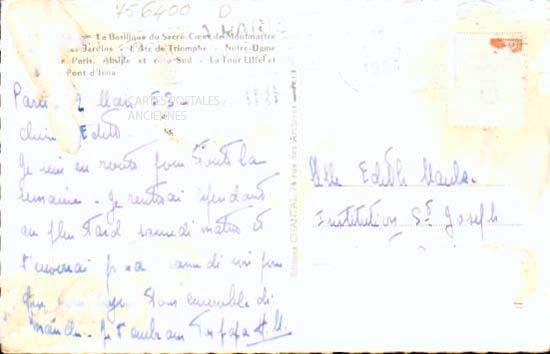 756400 D
- La Basilique du Sacré-Cœur de Montmartre
et Jardins - L'Arc de Triomphe - Notre-Dame
de Paris, Abside et côté Sud - La Tour Eiffel et
Pont d'Iéna
CARTES POSTALES
ANCIENNES
Paris 2 Mars 53
Edith
Je suis en route pour toute la
semaine - Je rentrerai cependant
au plus tard samedi matin et
t'enverrai samedi soir pour
que nous soyons tous ensemble di
manche - Je t'embrasse Ton papa H. M.
Editions CHANTAL, rue des Archives
Mlle Edith
Institution St Joseph